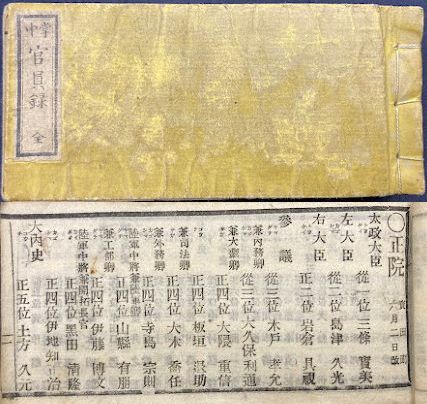 官員録 全
〇正院
六月二日改
太政大臣 從一位 三條 實美
左大臣 從二位 島津 久光
右大臣 正二位 岩倉 具視
參議 從三位 木戸 孝允
兼内務卿 從三位 大久保利通
兼大藏卿 正四位 大隈 重信
正四位 板垣 退助
兼司法卿 正四位 大木 喬任
兼外務卿 正四位 寺島 宗則
陸軍中將兼陸軍卿 正四位 山縣 有朋
兼工部卿 正四位 伊藤 博文
陸軍中將兼開拓長官 正四位 黒田 清隆
正四位 伊地知正治
大内史 正五位 土方 久元